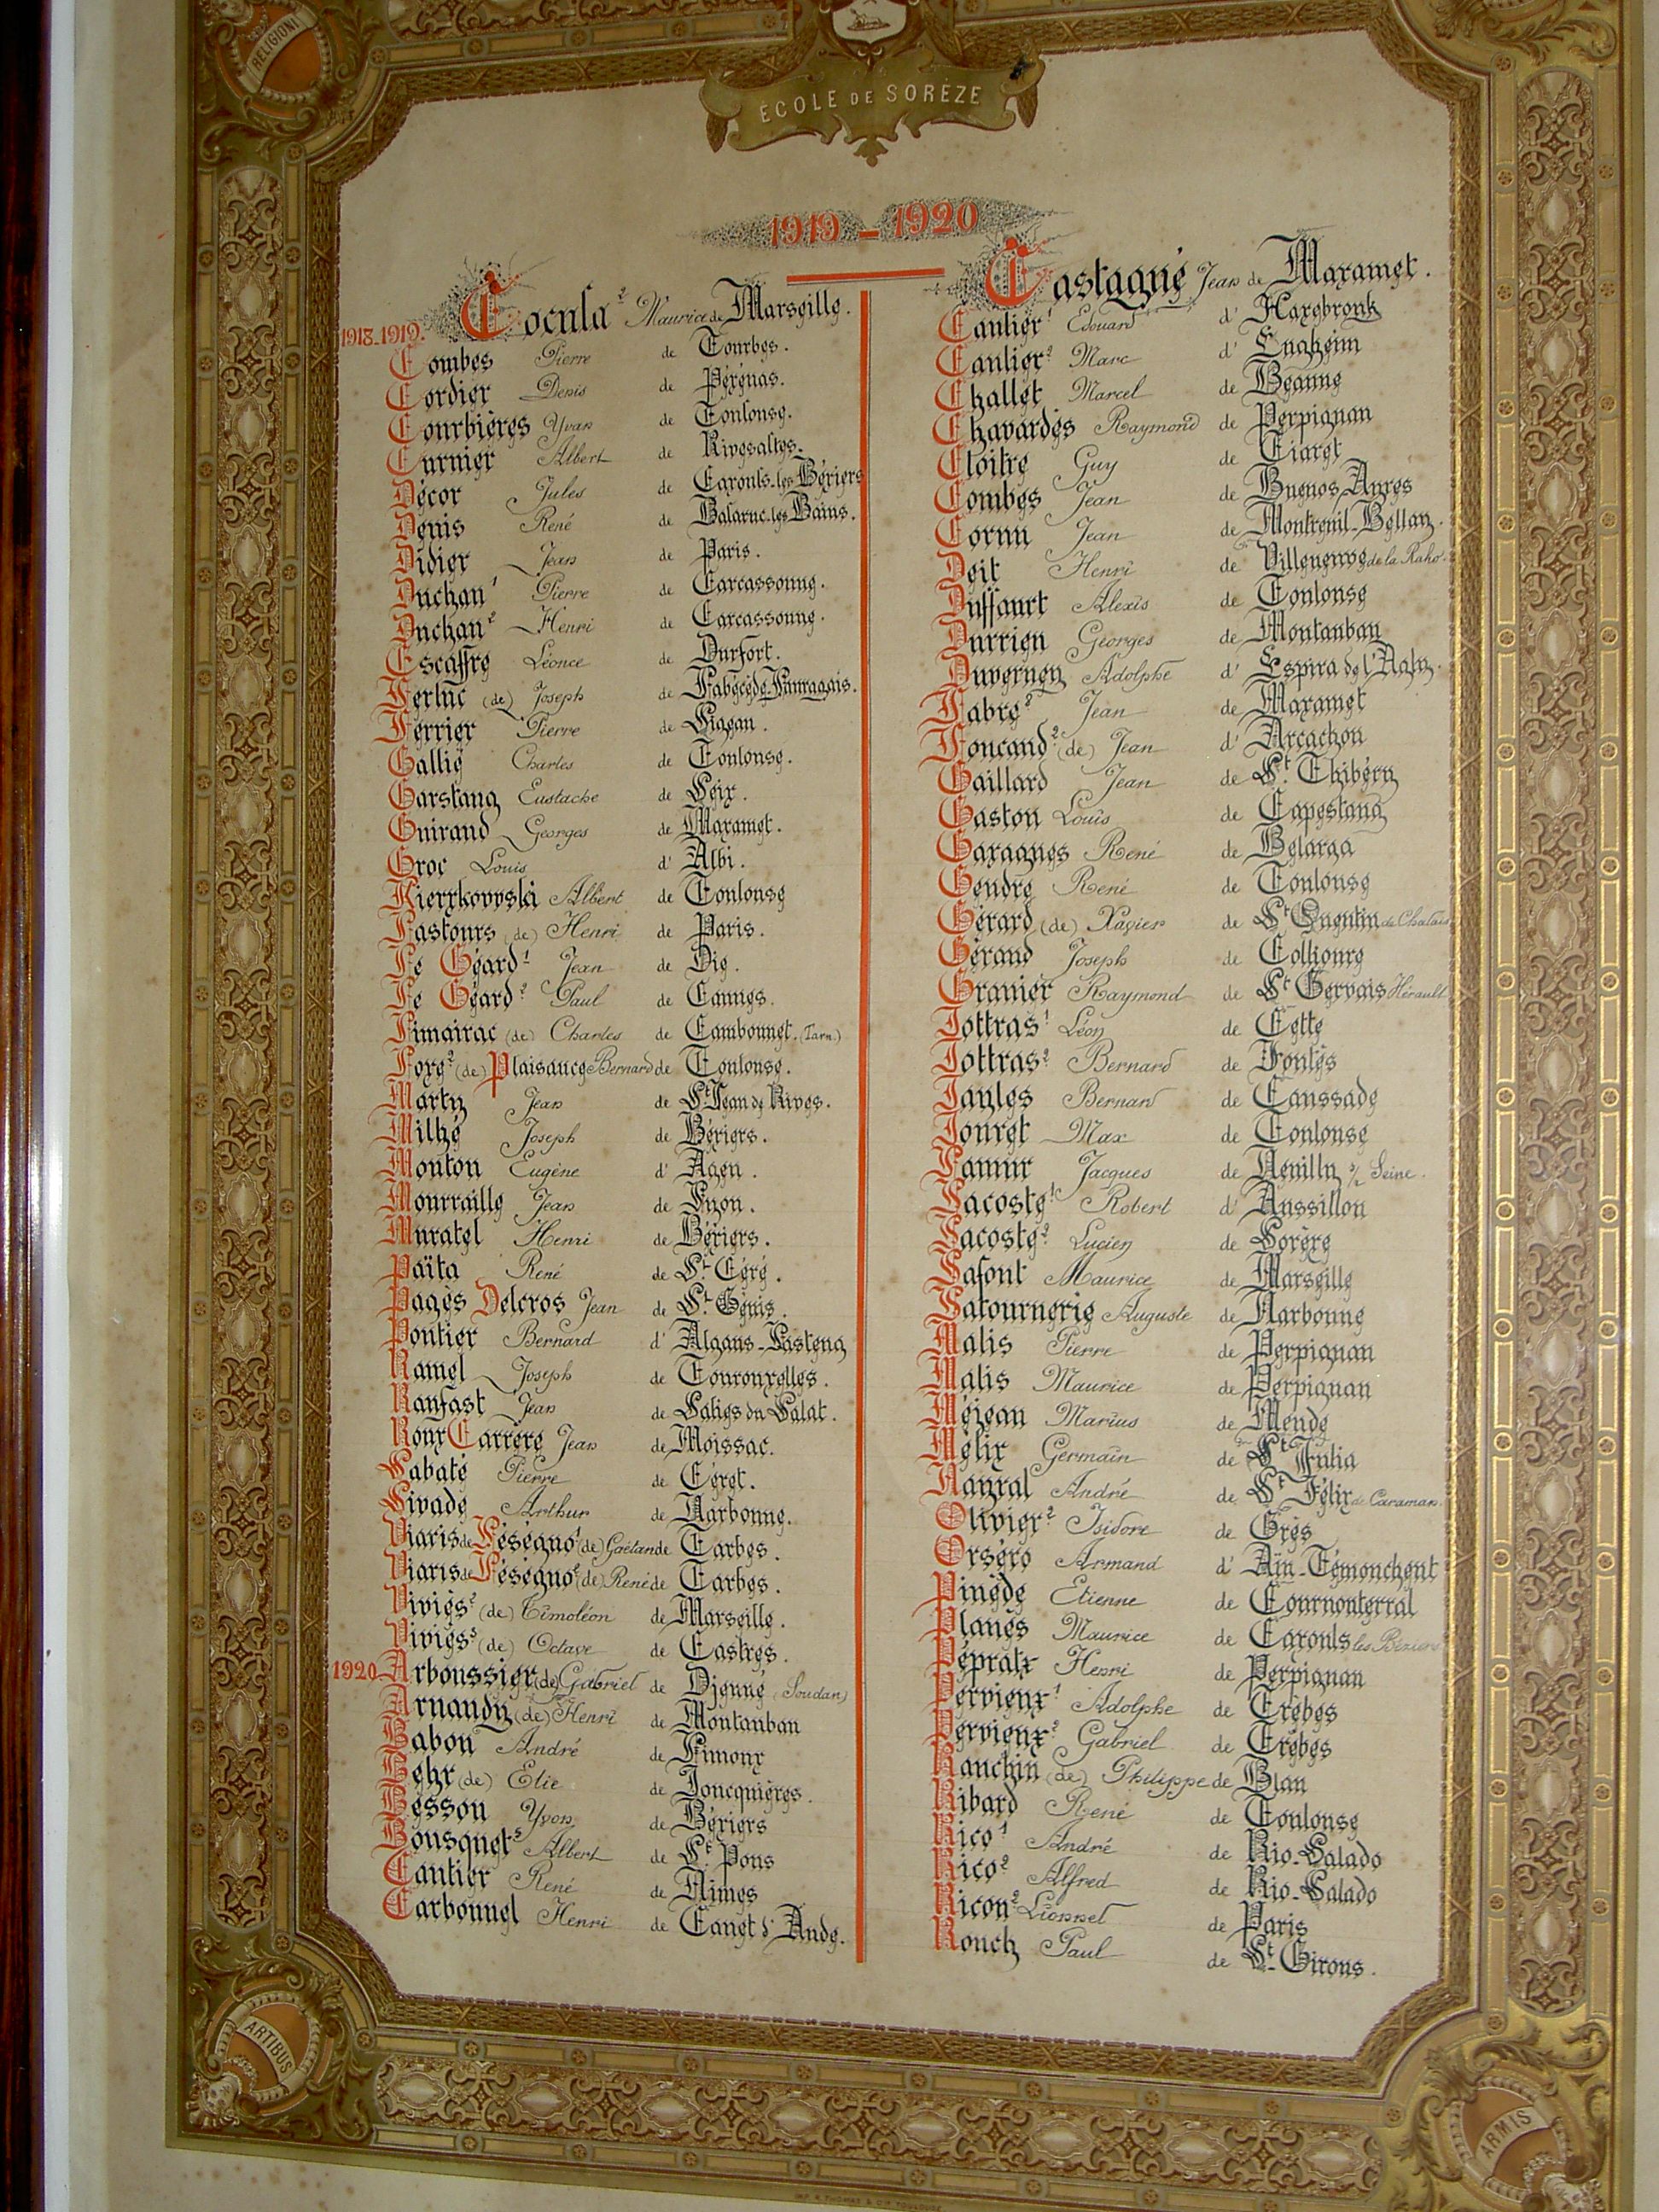 RELIGIONI
ÉCOLE DE SORÈZE
1919 – 1920
1918-1919. Cocula² Maurice de Marseille.
Combes Pierre de Tourbes.
Cordier Denis de Pézénas.
Courbières Yvan de Toulouse.
Curnier Albert de Rivesaltes.
Décor Jules de Cazouls-les-Béziers
Denis René de Balaruc-les-Bains.
Didier Jean de Paris.
Duchan¹ Pierre de Carcassonne.
Duchan² Henri de Carcassonne.
Escaffre Léonce de Durfort.
Ferluc (de) Joseph de Labécède-Lauragais.
Ferrier Pierre de
Gallié Charles de Toulouse.
Garstang Eustache de Seix.
Guiraud Georges de Mazamet.
Groc Louis d' Albi.
Kierzkowski Albert de Toulouse
Lastours (de) Henri de Paris.
Le Géard¹ Jean de Die.
Le Géard² Paul de Cannes.
Limairac (de) Charles de Cambounet. (Tarn.)
Loze² (de) Plaisance Bernard de Toulouse.
Marty Jean de St Jean de Rives.
Milhé Joseph de Béziers.
Mouton Eugène d' Agen.
Mourraille Jean de Lyon.
Muratel Henri de Béziers.
Païta René de St. Céré.
Pagès Delcros Jean de St. Génis.
Pontier Bernard d' Algans-Lastens
Ramel Joseph de Tourouzelles.
Ranfast Jean de Salies du Salat.
Roux Carrère Jean de Moissac.
Sabaté Pierre de Céret.
Sivade Arthur de Narbonne.
Viaris de Léségno¹ (de) Gaëtan de Tarbes.
Viaris de Léségno² (de) René de Tarbes.
Viviès² (de) Timoléon de Marseille.
Viviès³ (de) Octave de Castres.
1920. Arboussier (de) Gabriel de Djenné (Soudan)
Arnaudy (de) Henri de Montauban
Babou André de Limoux
Behr (de) Elie de Joncquières.
Besson Yvon de Béziers
Bousquet⁵ Albert de St. Pons
Cantier René de Nimes
Carbonnel Henri de Canet d'Aude.
Castagné Jean de Mazamet.
Caulier¹ Edouard d' Hazebrouk
Caulier² Marc d' Enghein
Challet Marcel de Beaune
Chavardès Raymond de Perpignan
Cloitre Guy de Ciaret
Combes Jean de Buenos Ayres
Cornu Jean de Montreuil-Bellay.
Deit Henri de Villeneuve de la Raho.
Dussaurt Alexis de Toulouse
Durrieu Georges de Montauban
Duverney Adolphe d' Espira de l'Agly.
Fabre² Jean de Mazamet
Foucaud² (de) Jean d' Arcachon
Gaillard Jean de St. Thibéry
Gaston Louis de Capestang
Gazagnes René de Bélarga
Gendre René de Toulouse
Gérard (de) Xavier de St Quentin de Chalais
Géraud Joseph de Collioure
Granier Raymond de St Gervais Hérault
Jottras¹ Léon de Cette
Jottras² Bernard de Fontès
Jaules Bernard de Caussade
Jouret Max de Toulouse
Lamur Jacques de Neuilly s/ Seine.
Lacoste¹ Robert d' Aussillon
Lacoste² Lucien de Sorèze
Lafont Maurice de Marseille
Latournerie Auguste de Narbonne
Malis Pierre de Perpignan
Malis Maurice de Perpignan
Méjean Marius de Mende
Mélix Germain de St Julia
Nayral André de St Félix de Caraman.
Olivier² Isidore de Grès
Orséro Armand d' Aïn-Témouchent
Pinède Etienne de Cournonterral
Planès Maurice de Cazouls les Béziers
Pépratx Henri de Perpignan
Pervieux¹ Adolphe de Trèbes
Pervieux² Gabriel de Trèbes
Ranchin (de) Philippe de Blan
Ribard René de Toulouse
Rico¹ André de Rio-Salado
Rico² Alfred de Rio-Salado
Ricon² Lionnel de Paris
Rouch Paul de St-Girons.
ARTIBUS
ARMIS